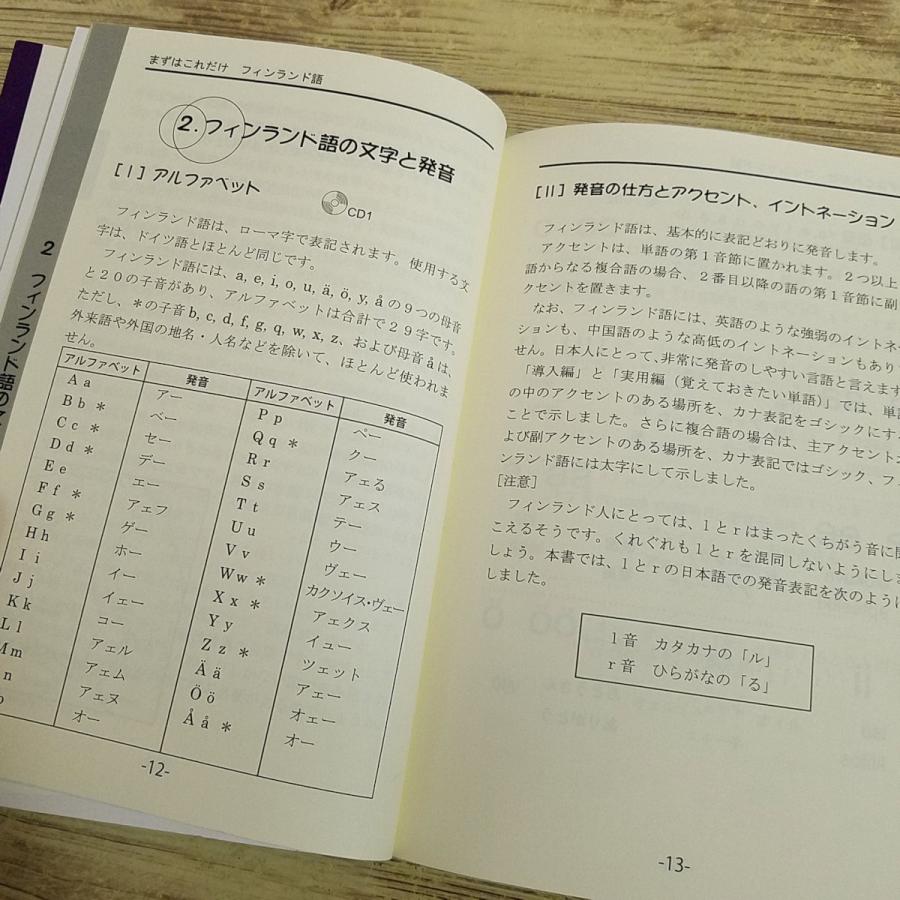 まずはこれだけ フィンランド語
2. フィンランド語の文字と発音
[I] アルファベット
CD1
フィンランド語は、ローマ字で表記されます。使用する文
字は、ドイツ語とほとんど同じです。
フィンランド語には、a, e, i, o, u, ä, ö, y, åの9つの母音
と20の子音があり、アルファベットは合計で29字です。
ただし、*の子音b, c, d, f, g, q, w, x, z、および母音åは、
外来語や外国の地名・人名などを除いて、ほとんど使われま
せん。
アルファベット 発音 アルファベット 発音
A a アー P p ペー
B b * ベー Q q * クー
C c * セー R r アェる
D d * デー S s アェス
E e エー T t テー
F f * アェフ U u ウー
G g * ゲー V v ヴェー
H h ホー W w * カクソイス・ヴェー
I i イー X x * アェクス
J j イェー Y y イュー
K k コー Z z * ツェット
L l アェル Ä ä アェー
M m アェム Ö ö オェー
n アェヌ Å å * オー
o オー
-12-
2 フィンランド語の文
[II] 発音の仕方とアクセント、イントネーション
フィンランド語は、基本的に表記どおりに発音します。
アクセントは、単語の第1音節に置かれます。2つ以上
語からなる複合語の場合、2番目以降の語の第1音節に副
クセントを置きます。
なお、フィンランド語には、英語のような強弱のイントネ
ションも、中国語のような高低のイントネーションもあり
せん。日本人にとって、非常に発音のしやすい言語と言えます
「導入編」と「実用編（覚えておきたい単語）」では、単
の中のアクセントのある場所を、カナ表記をゴシックにす
ことで示しました。さらに複合語の場合は、主アクセント
よび副アクセントのある場所を、カナ表記ではゴシック、フィ
ンランド語には太字にして示しました。
[注意]
フィンランド人にとっては、lとrはまったくちがう音に
こえるそうです。くれぐれもlとrを混同しないようにしま
しょう。本書では、lとrの日本語での発音表記を次のように
しました。
l音 カタカナの「ル」
r音 ひらがなの「る」
-13-